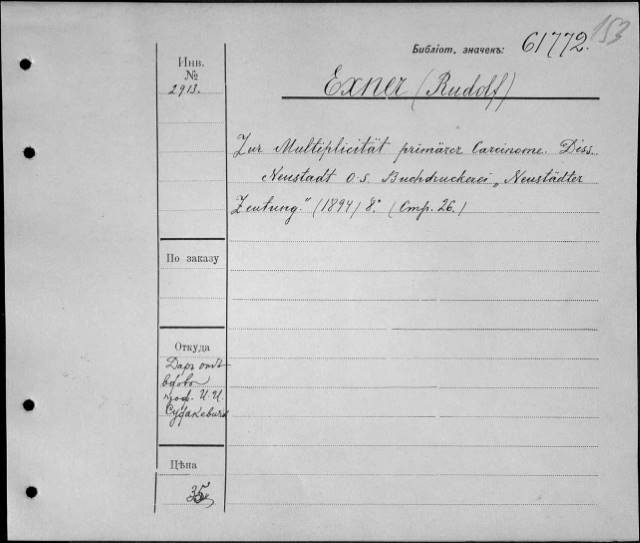 153
Библіот. значекъ: 61772.
Инв.
№
2913.
Exner (Rudolf)
Zur Multiplicität primärer Carcinome. Diss.
Neustadt O.S. Buchdruckerei „Neustädter
Zeutung." (1894) 8°. (Стр. 26.)
По заказу
Откуда
Даръ отъ
вдовы
проф. И. И.
Судакевича
Цѣна
35